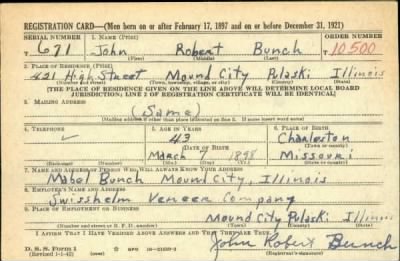 REGISTRATION CARD—(Men born on or after February 17, 1897 and on or before December 31, 1921)
SERIAL NUMBER 1. NAME (Print) ORDER NUMBER
T 671 John Robert Bunch 10500
(First) (Middle) (Last)
2. PLACE OF RESIDENCE (Print)
421 High Street Mound City Pulaski Illinois
[THE PLACE OF RESIDENCE GIVEN ON THE LINE ABOVE WILL DETERMINE LOCAL BOARD
JURISDICTION; LINE 2 OF REGISTRATION CERTIFICATE WILL BE IDENTICAL]
3. MAILING ADDRESS
(Same)
[Mailing address if other than place indicated on line 2. If same insert word same]
4. TELEPHONE 5. AGE IN YEARS 6. PLACE OF BIRTH
43 Charleston
DATE OF BIRTH
March 7 1898 Missouri
7. NAME AND ADDRESS OF PERSON WHO WILL ALWAYS KNOW YOUR ADDRESS
Mabel Bunch Mound City, Illinois
8. EMPLOYER'S NAME AND ADDRESS
Swisshelm Veneer Company
9. PLACE OF EMPLOYMENT OR BUSINESS
Mound City Pulaski Illinois
I AFFIRM THAT I HAVE VERIFIED ABOVE ANSWERS AND THAT THEY ARE TRUE.
D. S. S. Form 1
(Revised 1-1-42)
John Robert Bunch
(Registrant's signature)